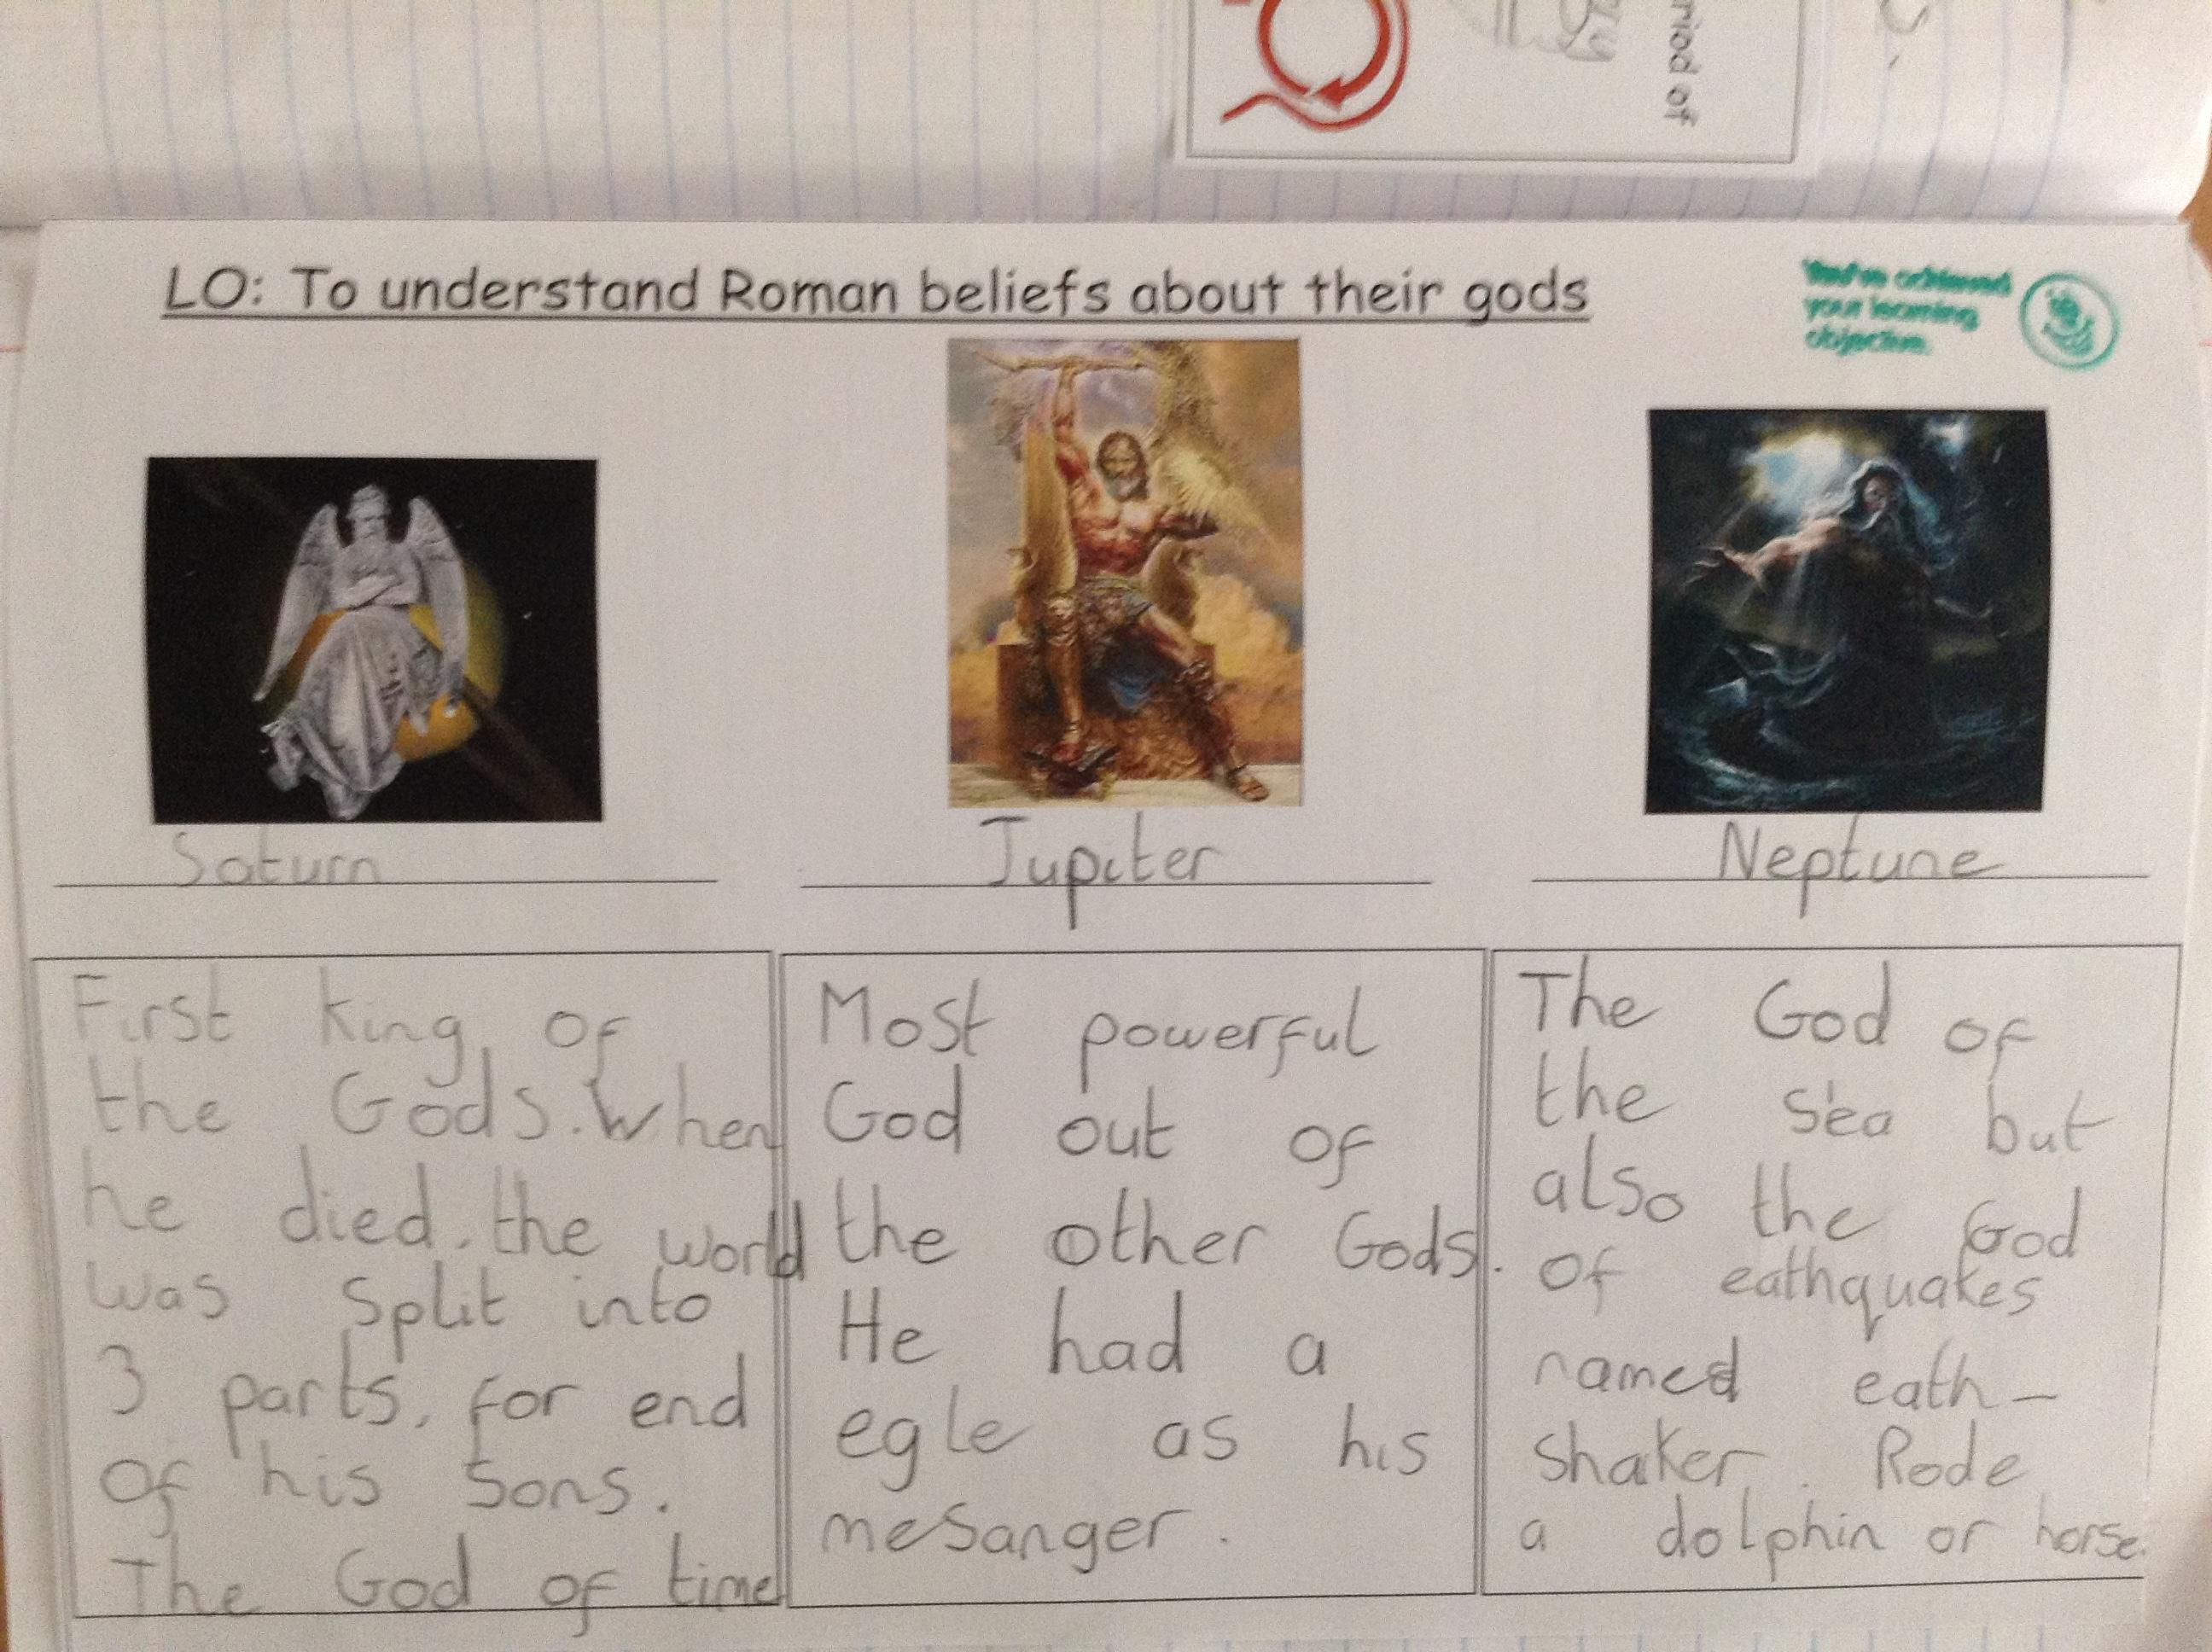 riod of
LO: To understand Roman beliefs about their gods
You've achieved
your learning
objective.
Saturn
Jupiter
Neptune
First king of
the Gods. When
he died, the world
was split into
3 parts, for end
of his sons.
The God of time
Most powerful
God out of
the other Gods.
He had a
egle as his
mesanger.
The God of
the sea but
also the God
of eathquakes
named eath-
shaker. Rode
a dolphin or horse.